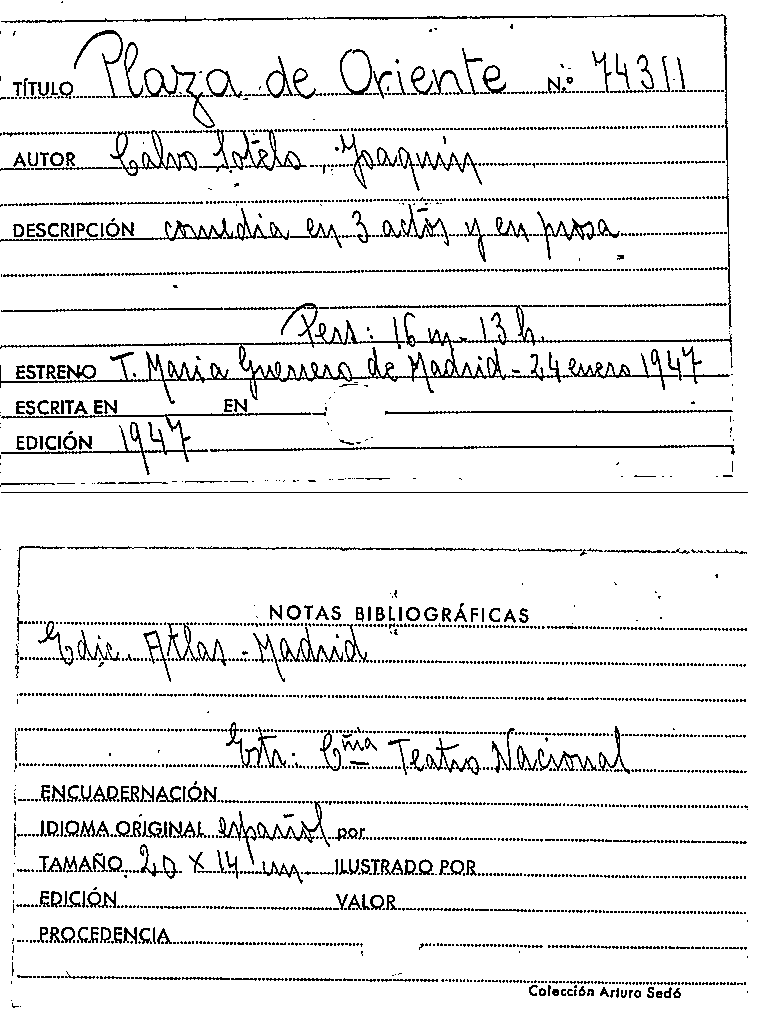 TÍTULO Plaza de Oriente N.º 74311
AUTOR Calvo Sotelo, Joaquín
DESCRIPCIÓN comedia en 3 actos y en prosa
Pers: 16 m - 13 h.
ESTRENO T. Maria Guerrero de Madrid - 24 enero 1947
ESCRITA EN EN
EDICIÓN 1947
NOTAS BIBLIOGRÁFICAS
Edic. Atlas - Madrid
Estr: Cñia Teatro Nacional
ENCUADERNACIÓN
IDIOMA ORIGINAL español por
TAMAÑO 20 X 14 cm ILUSTRADO POR
EDICIÓN VALOR
PROCEDENCIA
Colección Arturo Sedó